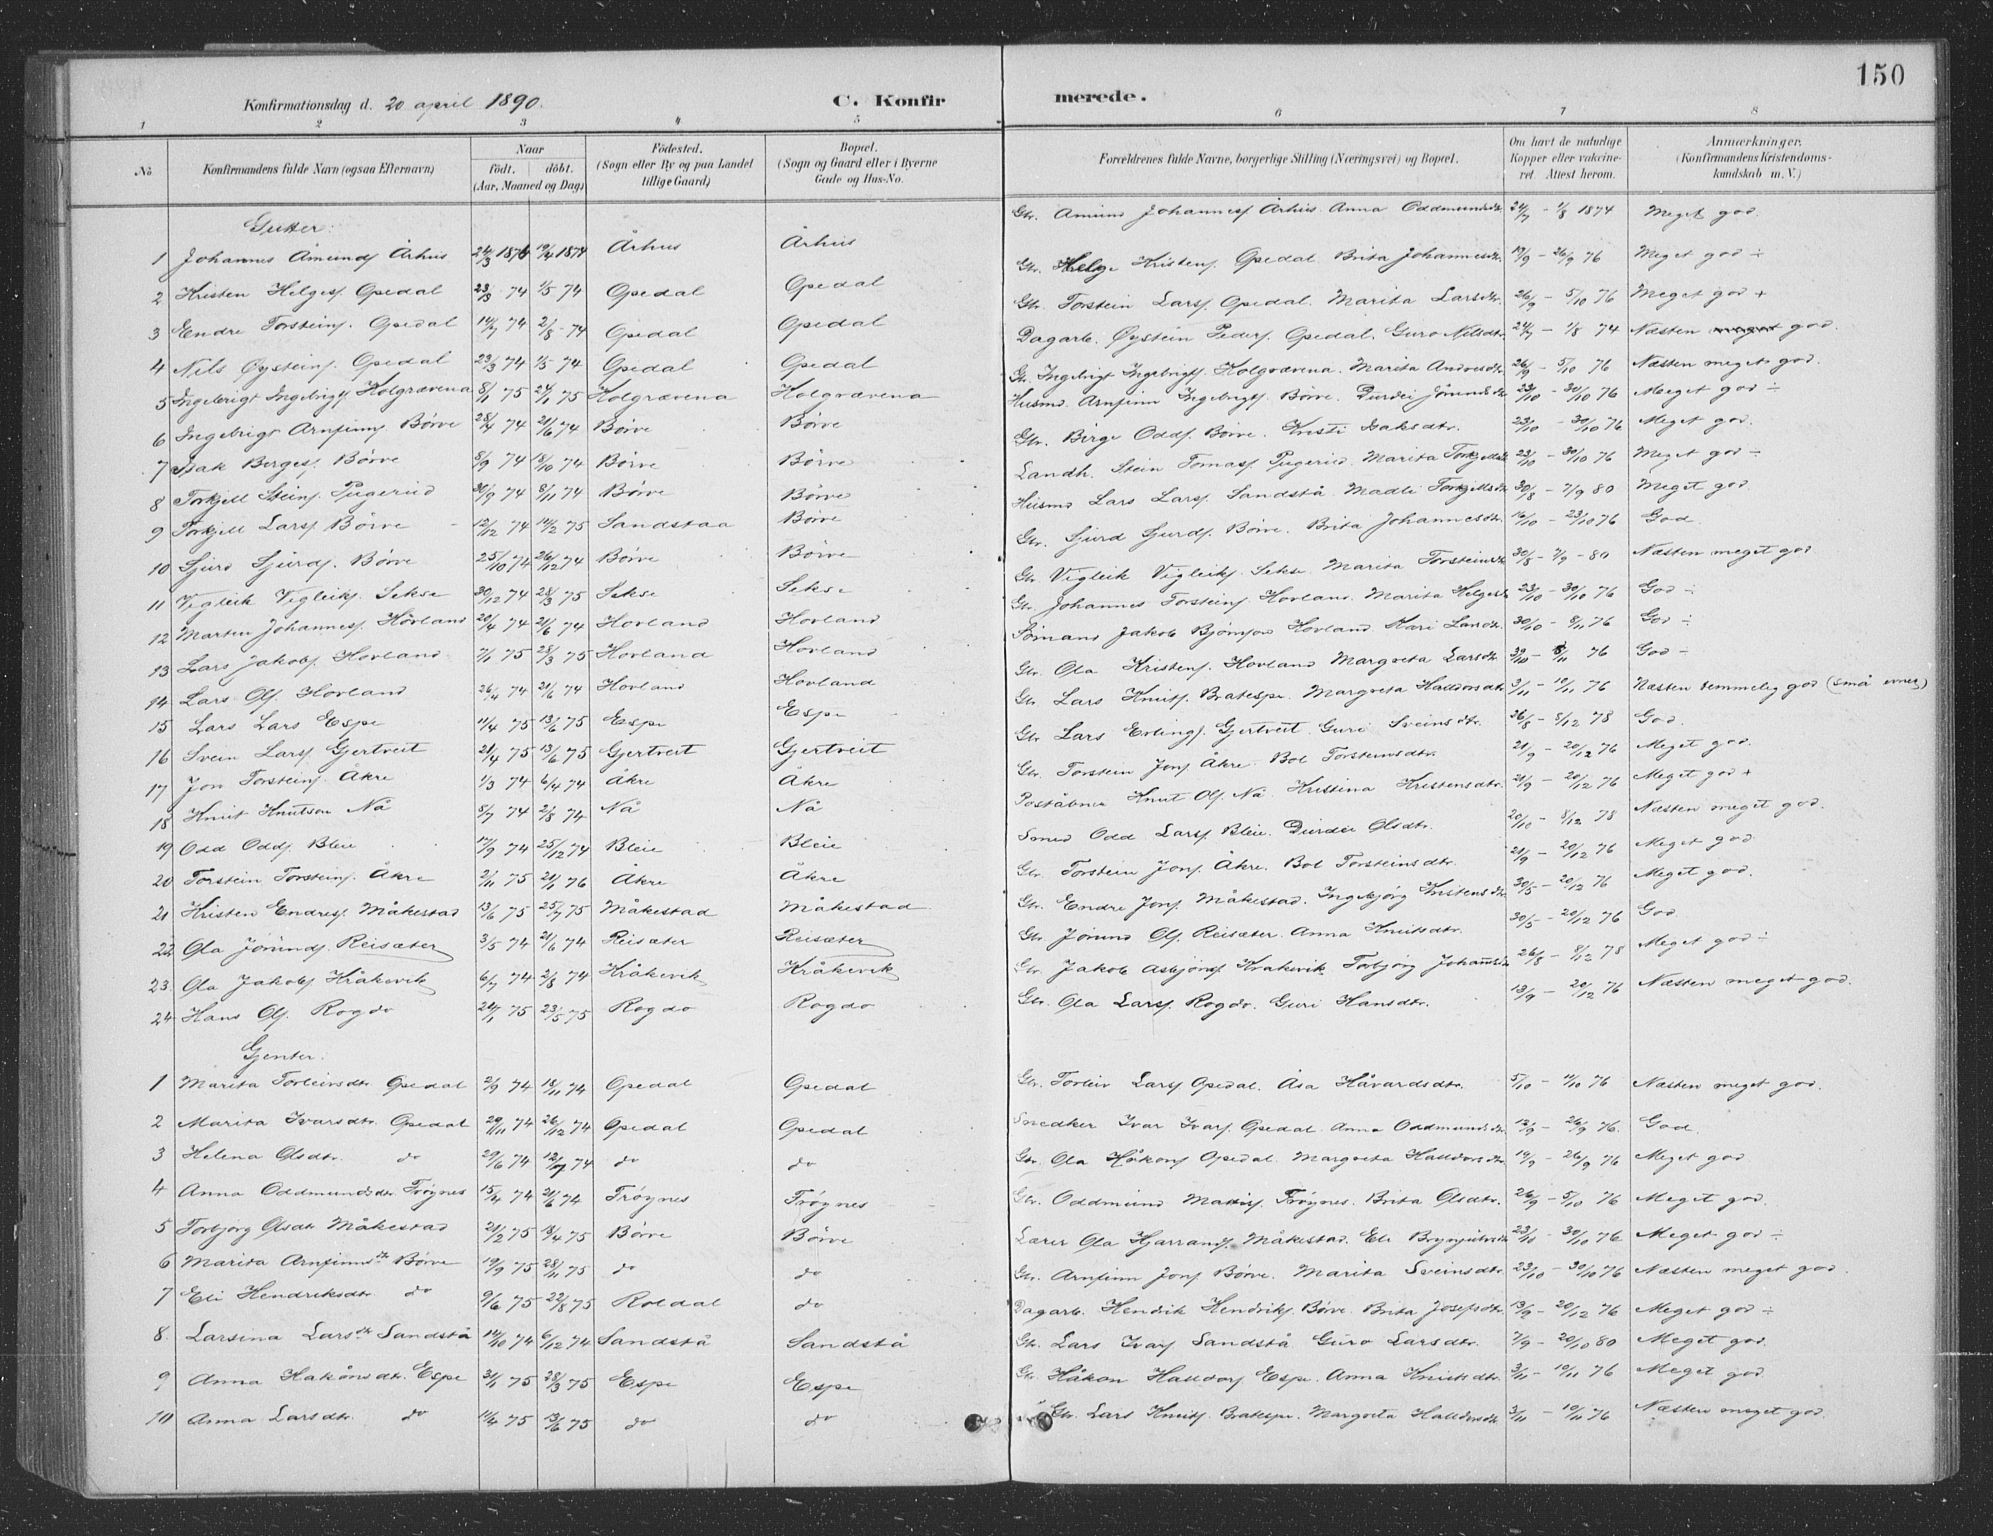 150
Konfirmationsdag d. 20 april 1890. C. Konfirmerede.
1 2 3 4 5 6 7 8
No Konfirmandens fulde Navn (ogsaa Efternavn) Naar födt. döbt. (Aar, Maaned og Dag) Födested. (Sogn eller By og paa Landet tillige Gaard) Bopæl. (Sogn og Gaard eller i Byerne Gade og Hus-No. Forældrenes fulde Navne, borgerlige Stilling (Næringsvei) og Bopæl. Om havt de naturlige Kopper eller vakcineret. Attest herom. Anmærkninger. (Konfirmandens Kristendomskundskab m. V.)
Gutter:
1 Johannes Åmundf Århus 24/3 1874 19/4 1874 Århus Århus Gbr. Amund Johannesf Århus. Anna Oddmundsdtr. 24/7 - 1/8 1874 Meget god.
2 Kristen Helgesf. Opedal 23/3 74 1/5 74 Opedal Opedal Gbr. Helge Kristenf. Opedal Brita Johannesdtr. 19/9 - 26/9 76 Meget god ÷
3 Endre Torsteinf. Opedal 14/7 74 2/8 74 Opedal Opedal Gbr. Torstein Larsf. Opedal. Marita Larsdtr. 26/9 - 5/10 76 Meget god +
4 Nils Øysteinf. Opedal 23/3 74 1/5 74 Opedal Opedal Dagarb. Øystein Pedersf. Opedal. Guro Nilsdtr. 24/7 - 1/8 74 Næsten meget god.
5 Ingebrigt Ingebrigtf Holgrævena 8/1 75 24/1 75 Holgrævena Holgrævena Gb. Ingebrigt Ingebrigtf. Holgrævena. Marita Andresdtr. 26/9 - 5/10 76 Næsten meget god.
6 Ingebrigt Arnfinnf Börve 28/4 74 21/6 74 Börve Börve Husmd. Arnfinn Ingebrigtf. Börve. Durdei Jörundsdtr. 23/10 - 30/10 76 Meget god ÷
7 Isak Bergesf. Börve 8/9 74 18/10 74 Börve Börve Gbr. Birge Oddf. Börve. Kristi Isaksdtr. 23/10 - 30/10 76 Meget god.
8 Torkjell Steinf. Pugerud 30/9 74 8/11 74 Börve Börve Landh. Stein Tomasf. Pugerud. Marita Torkjellsdtr. 23/10 - 30/10 76 Meget god ÷
9 Torkjell Larsf Börve 12/12 74 14/2 75 Sandstaa Börve Husmd Lars Larsf. Sandstå Madli Torkjellsdtr. 30/8 - 7/9 80 Meget god
10 Sjurd Sjurdf. Börve 25/10 74 26/12 74 Börve Börve Gbr. Sjurd Sjurdf. Börve. Brita Johannesdtr. 16/10 - 23/10 76 God
11 Vigleik Vigleikf. Sekse 30/12 74 28/3 75 Sekse Sekse Gbr Vigleik Vigleikf. Sekse. Marita Torsteinsdtr. 30/8 - 7/9 - 80 Næsten meget god
12 Marten Johannesf. Hovland 20/4 74 21/6 74 Hovland Hovland Gbr. Johannes Torsteinf. Hovland. Marita Helgesdtr. 23/10 - 30/10 76 God ÷
13 Lars Jakobf. Hovland 7/1 75 28/3 75 Hovland Hovland Sömand Jakob Bjönson Hovland Kari Larsdtr. 30/10 - 8/11 76 God ÷
14 Lars Olf Hovland 26/4 74 21/6 74 Hovland Hovland Gbr. Ola Kristenf. Hovland Margreta Larsdtr. 30/10 - 8/11 76 God ÷
15 Lars Lars Espe 11/4 75 13/6 75 Espe Espe Gbr Lars Knutf. Bratespe. Margreta Halldorsdtr 3/11 - 10/11 76 Næsten temmelig god (små evner)
16 Svein Larsf Gjertveit 21/4 75 13/6 75 Gjertveit Gjertveit Gbr Lars Erlingf. Gjertveit. Guri Sveinsdtr. 26/8 - 8/12 78 God.
17 Jon Torsteinf. Åkre 1/3 74 6/4 74 Åkre Åkre Gbr. Torstein Jonf Åkre. Bol Torsteinsdtr. 21/9 - 20/12 76 Meget god.
18 Knut Knutson Nå 8/7 74 2/8 74 Nå Nå Poståbner Knut Olf. Nå. Kristina Kristensdtr. 21/9 - 20/12 76 Meget god +
19 Odd Oddf. Bleie 17/9 74 25/12 74 Bleie Bleie Smed Odd Larsf. Bleie. Durdei Olsdtr. 20/10 - 8/12 78 Næsten meget god.
20 Torstein Torsteinf. Åkre 2/11 75 21/1 76 Åkre Åkre Gbr. Torstein Jonf. Åkre. Bol Torsteinsdtr. 21/9 - 20/12 76 Meget god
21 Kristen Endresf. Måkestad 13/6 75 25/7 75 Måkestad Måkestad Gbr. Endre Jonf. Måkestad. Ingebjörg Kristensdtr. 30/5 - 20/12 76 Meget god.
22 Ola Jörundf. Reisæter 3/5 74 21/6 74 Reisæter Reisæter Gbr Jörund Olf. Reisæter. Anna Knutsdtr. 30/5 - 20/12 76 God
23. Ola Jakobf Kråkevik 6/7 74 2/8 74 Kråkevik Kråkevik Gbr Jakob Asbjönf Krakevik. Torbjörg Johannsdtr. 26/8 - 8/12 78 Meget god ÷
24 Hans Olf. Rogdo 24/1 75 23/5 75 Rogdo Rogdo Gbr. Ola Larsf Rogdo. Guri Hansdtr. 13/9 - 20/12 76 Næsten meget god.
Gjenter:
1 Marita Torleivsdtr Opedal 2/9 74 18/11 74 Opedal Opedal Gbr. Torleiv Larsf Opedal. Åsa Håvardsdtr. 5/10 - 11/10 76 Næsten meget god.
2 Marita Ivarsdtr. Opedal 29/11 74 26/12 74 Opedal Opedal Snedker Ivar Ivarf. Opedal. Anna Oddmundsdtr. 19/9 - 26/9 76. God.
3 Helena Olsdtr. do 29/6 74 12/7 74 do do Gbr. Ola Håkonf Opedal. Margreta Halldorsdtr 19/9 - 26/9 76 Meget god.
4 Anna Oddmundsdtr Tröynes 15/4 74 21/6 74 Tröynes Tröynes Gbr. Oddmund Matisf. Tröynes. Brita Olsdtr. 26/9 - 5/10 76 Meget god.
5 Torbjörg Olsdtr Måkestad 21/2 75 18/4 75 Börve Börve Lærer Ola Hjarrandf. Måkestad. Eli Brynjulvsdtr 23/10 - 30/10 76 Meget god ÷
6 Marita Arnfinnsdtr Börve 19/9 75 28/11 75 do do Gbr. Arnfinn Jonf Börve. Marita Sveinsdtr. 23/10 - 30/10 76 Næsten meget god.
7 Eli Hendriksdtr. do 9/6 75 22/8 75 Roldal do Dagarb. Hendrik Hendrikf. Börve. Brita Josefsdtr. 13/9 - 20/12 76 Meget god ÷
8. Larsina Larsdtr Sandstå 14/10 74 6/12 74 Sandstå Sandstå Gbr. Lars Ivarf Sandstå Guro Larsdtr. 7/9 - 20/10 80 Meget god.
9 Anna Hakönsdtr. Espe 31/1 75 28/3 75 Espe Espe Gbr. Håkon Halldorf Espe. Anna Knutsdtr. 3/11 - 10/11 76 Meget god
10 Anna Larsdtr. do 11/4 75 13/6 75 do do Gbr. Lars Knutf. Bratespe. Margreta Halldorsdtr 3/11 - 10/11 76 Næsten meget god.